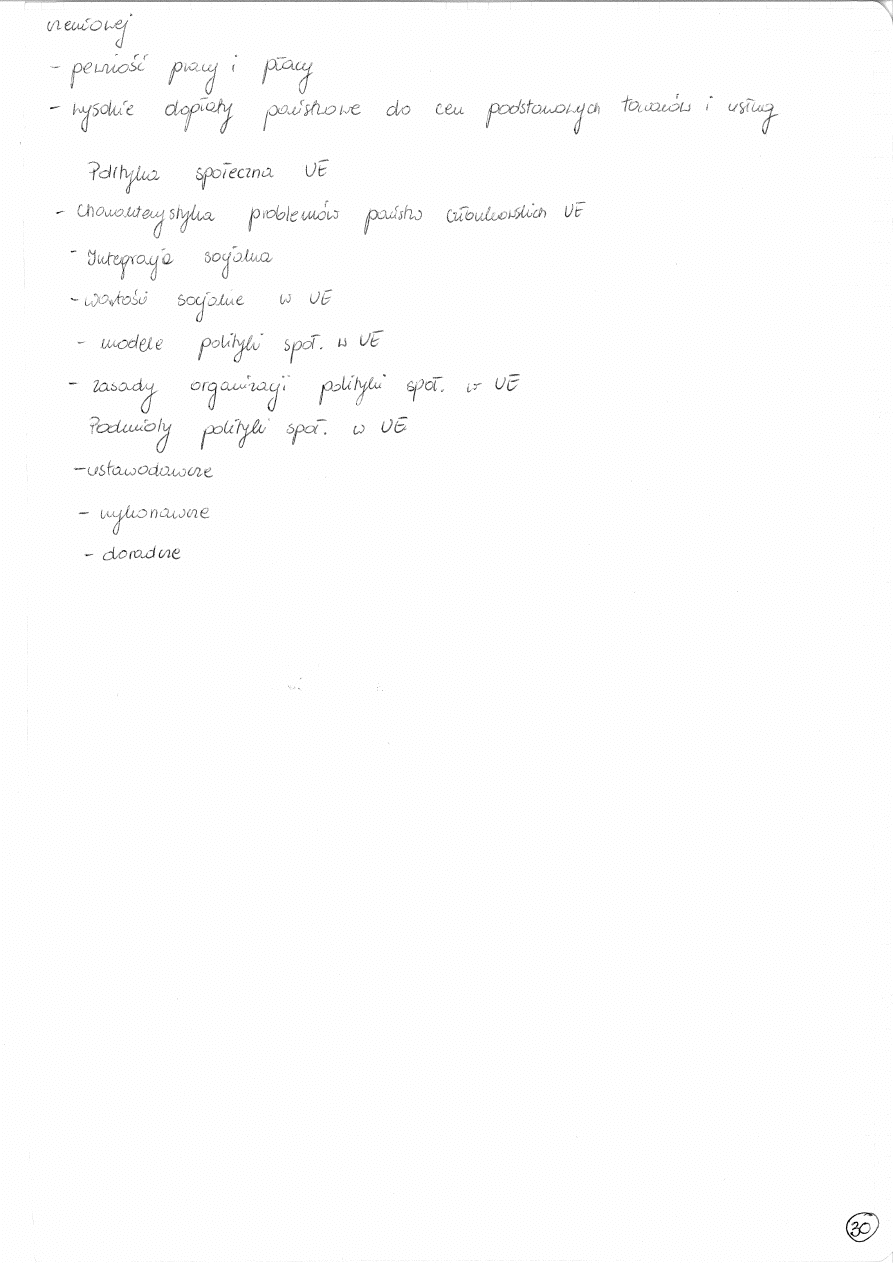 czeniowej
- pewność pracy i płacy
- wysokie dopłaty państwowe do cen podstawowych towarów i usług
Polityka społeczna UE
- Charakterystyka problemów państw członkowskich UE
- Integracja socjalna
- wartości socjalne w UE
- modele polityki społ. w UE
- zasady organizacji polityki społ. w UE
Podmioty polityki społ. w UE
- ustawodawcze
- wykonawcze
- doradcze
30